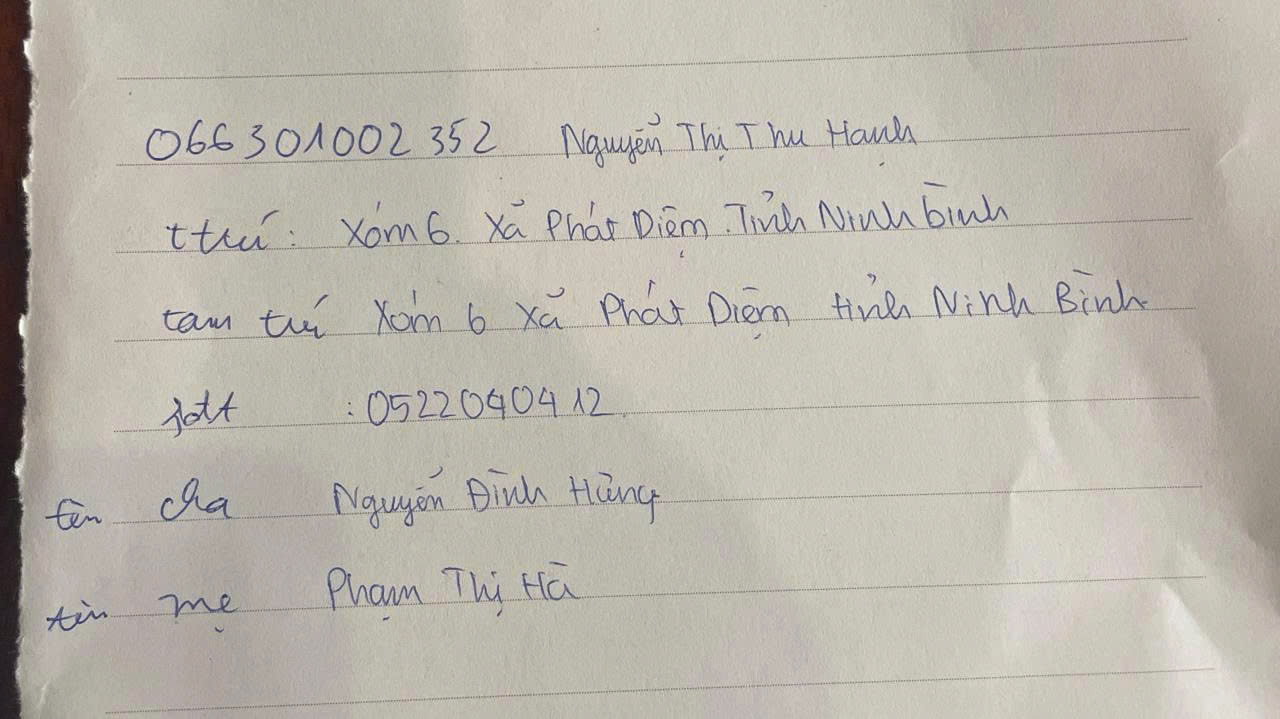 066301002352 Nguyễn Thị Thu Hạnh
ttrú: Xóm 6. Xã Phát Diệm. Tỉnh Ninh bình
tam trú Xóm 6 Xã Phát Diệm tỉnh Ninh Bình
sđt : 0522040412
tên cha Nguyễn Đình Hùng
tên mẹ Phạm Thị Hà